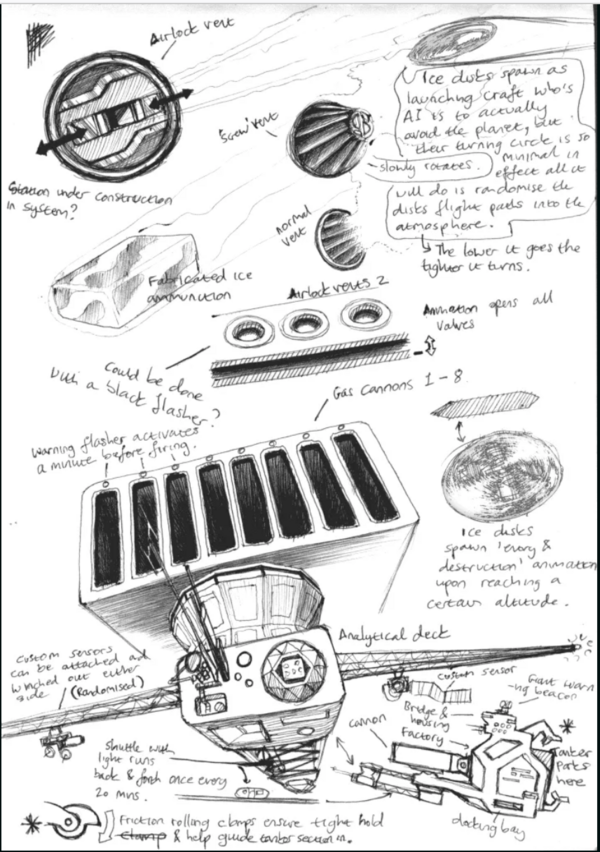 Airlock vent
Ice disks spawn as
launching craft who's
AI is to actually
avoid the planet, but
their turning circle is so
minimal in
effect all it
will do is randomise the
disks flight paths into the
atmosphere.
The lower it goes the
tighter it turns.
'Screw' vent
slowly rotates.
normal
vent
Station under construction
in system?
Fabricated ice
ammunition
Airlock vents 2
Animation opens all
valves
could be done
with a black flasher?
Gas cannons 1-8.
warning flasher activates
a minute before firing.
Ice disks
spawn 'entry &
destruction' animation
upon reaching a
certain altitude.
Analytical deck
custom sensors
can be attached and
winched out either
side (Randomised)
custom sensor
Giant warn
-ing beacon
Bridge &
housing
Factory
cannon
Tanker
parts
here
docking bay
shuttle with
light runs
back & forth once every
20 mins.
Friction rolling clamps ensure tight hold
Clamp & help guide tanker section in.